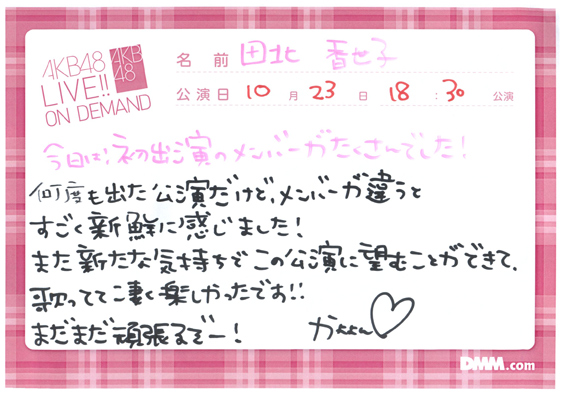 AKB48
LIVE!!
ON DEMAND
AKB
48
名前 田北 香世子
公演日 10月23日 18:30 公演
今日は、初出演のメンバーがたくさんでした!
何度も出た公演だけど、メンバーが違うと
すごく新鮮に感じました!
また新たな気持ちでこの公演に望むことができて、
歌ってて凄く楽しかったです!!
まだまだ頑張るぞー!
かよよん♡
DMM.com